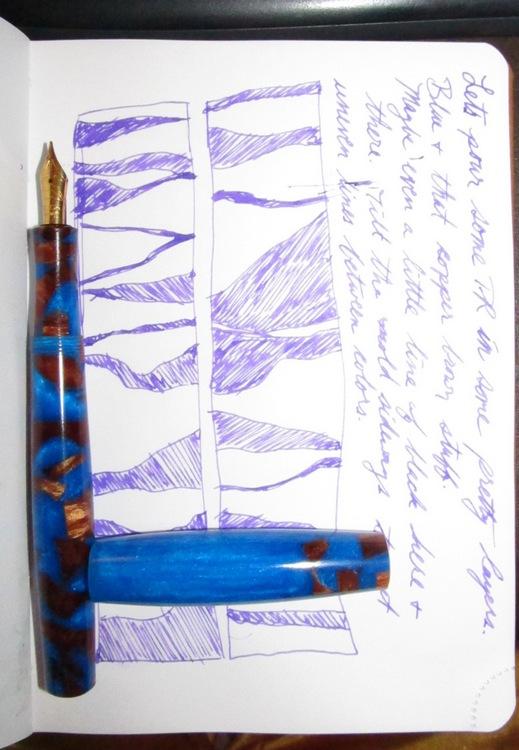 Lets pour some PR in some pretty layers.
Blue & that copper binz stuff.
Maybe even a little line of black here &
there. Tilt the mold sideways to get
uneven lines between colors.